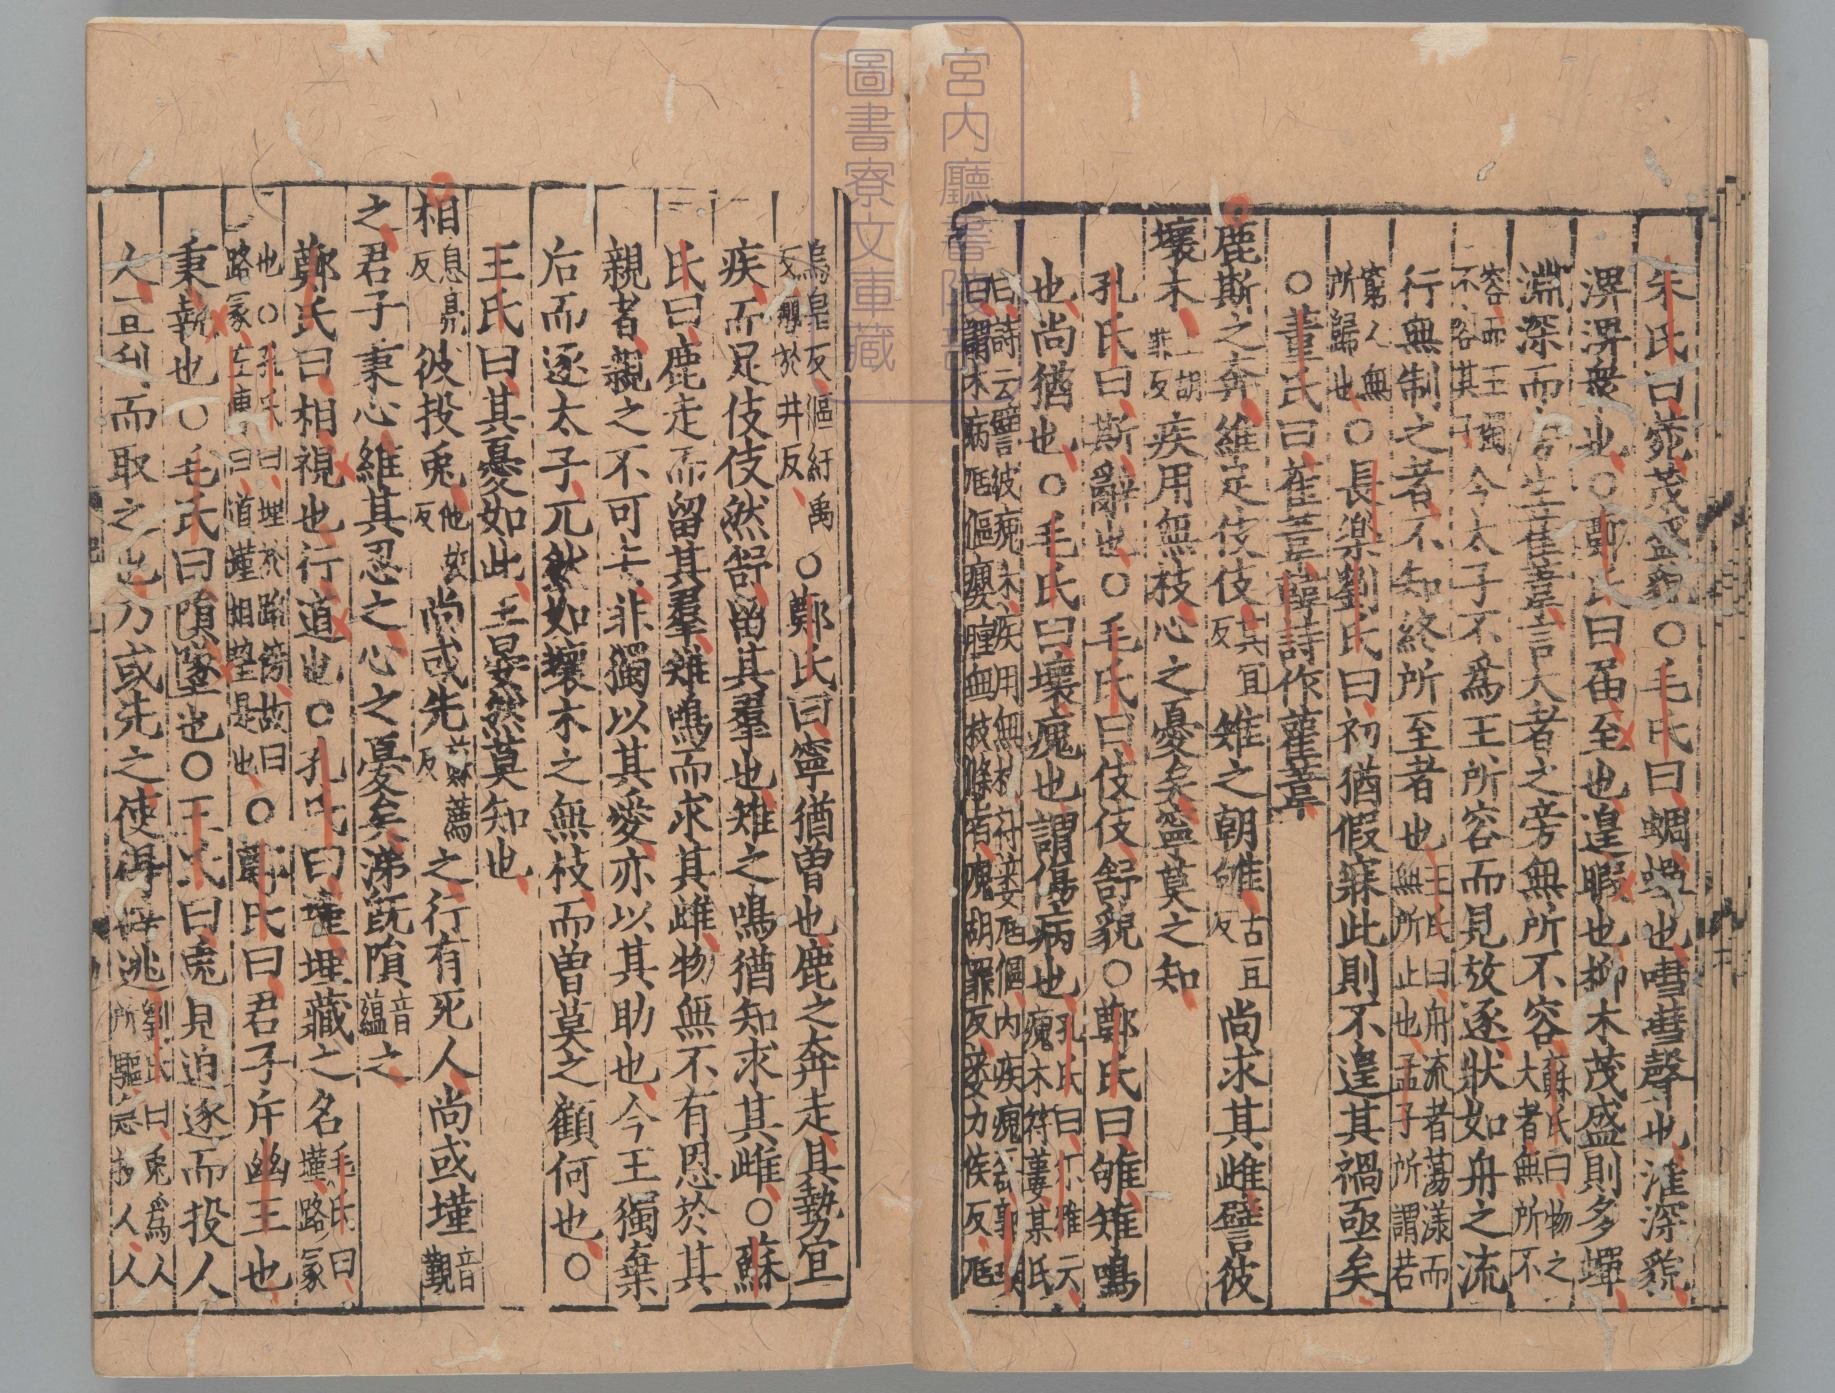 朱氏曰菀茂盛貌○毛氏曰蜩蟬也嘒嘒聲也漼深貌
淠淠衆也○鄭氏曰届至也遑暇也柳木茂盛則多蟬
淵深而旁生萑葦言大者之旁無所不容蘇氏曰物之大者無所不
容而王獨不容其子今太子不為王所容而見放逐狀如舟之流
行無制之者不知終所至者也王氏曰舟流者蕩漾而無所止也孟子所謂若
窮人無所歸也○長樂劉氏曰初猶假寐此則不遑其禍亟矣
○董氏曰萑葦韓詩作雚葦
鹿斯之奔維足伎伎其宜反雉之朝雊古豆反尚求其雌譬彼
壞木胡罪反疾用無枝心之憂矣寧莫之知
孔氏曰斯辭也○毛氏曰伎伎舒貌○鄭氏曰雊雉鳴
也尚猶也○毛氏曰壞瘣也謂傷病也孔氏曰尒雅云瘣木符蔞某氏
曰詩云譬彼瘣木疾用無枝符蔞尫傴内疾瘣
曰謂木病尫傴癭腫無枝條者瘣胡罪反蔞力侯反尫
烏皇反傴紆禹反癭於井反○鄭氏曰寧猶曽也鹿之奔走其勢宜
疾而足伎伎然舒留其羣也雉之鳴猶知求其雌○蘇
氏曰鹿走而留其羣雉鳴而求其雌物無不有恩於其
親者親之不可去非獨以其愛亦以其助也今王獨棄
后而逐太子兀然如壞木之無枝而曽莫之顧何也○
王氏曰其憂如此王晏然莫知也
相息亮反彼投兎他故反尚或先蘇薦反之行有死人尚或墐音覲
之君子秉心維其忍之心之憂矣涕旣隕音蘊之
鄭氏曰相視也行道也○孔氏曰墐埋藏之名毛氏曰墐路冢
也○孔氏曰埋於路傍故曰路冢左傳曰道墐相望是也○鄭氏曰君子斥幽王也
秉執也○毛氏曰隕墜也○王氏曰兎見迫逐而投人
人宜利而取之也乃或先之使得逃劉氏曰兎為人所驅急投人人